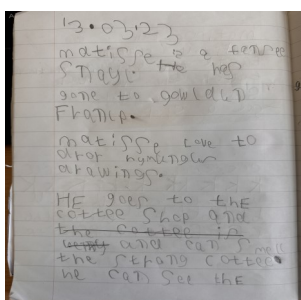 13.03.23
matisse is a femsee
snayl. He has
gone to gowlden
Franle.
matisse love to
dror numengles
drawings.
HE goes to thE
cottee shop and
the cottee is
and can smell
the strong cottee.
he can see the